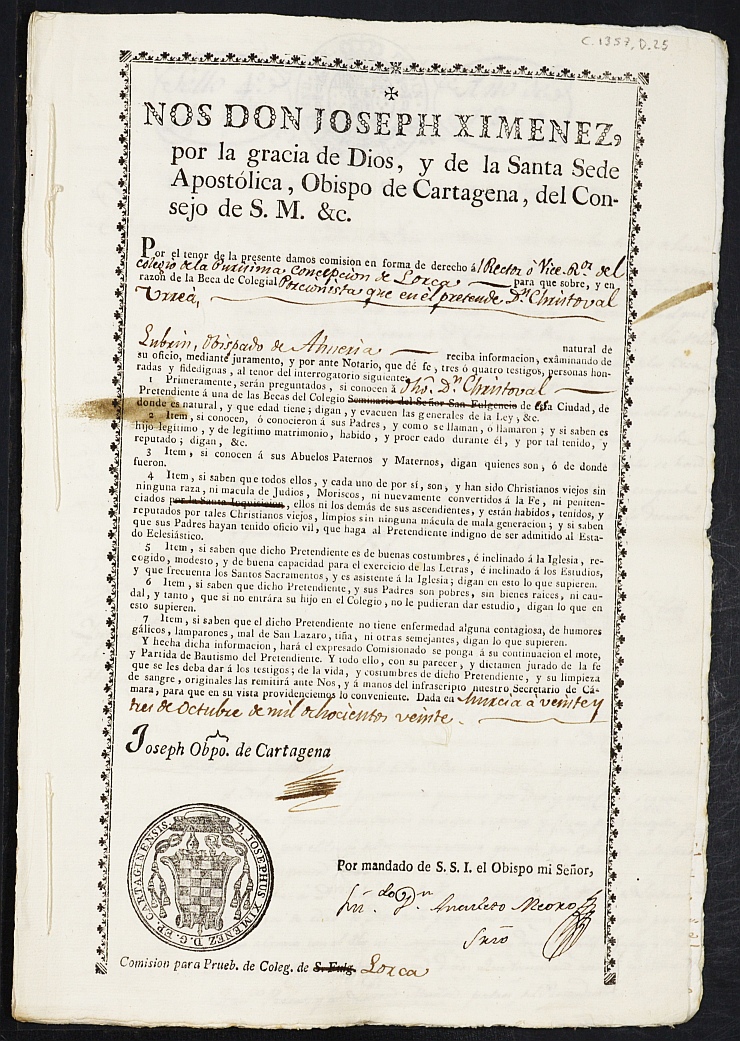 C.1357, D.25
NOS DON JOSEPH XIMENEZ,
por la gracia de Dios, y de la Santa Sede
Apostólica, Obispo de Cartagena, del Con-
sejo de S. M. &c.
Por el tenor de la presente damos comision en forma de derecho ál Rector ó Vice-Ror. del
Colegio de la Purisima Concepcion de Lorca para que sobre, y en
razon de la Beca de Colegial Porcionista que en el pretende Dn. Christoval
Urrea,
natural de
Lubrin, Obispado de Almeria reciba informacion, exâminando de
su oficio, mediante juramento, y por ante Notario, que dé fe, tres ó quatro testigos, personas hon-
radas y fidedignas, al tenor del interrogatorio siguiente.
1 Primeramente, serán preguntados, si conocen á dho. Dn. Christoval
Pretendiente á una de las Becas del Colegio Seminario del Señor San Fulgencio de esta Ciudad, de
donde es natural, y que edad tiene; digan, y evacuen las generales de la Ley, &c.
2 Item, si conocen, ó conocieron á sus Padres, y como se llaman, ó llamaron; y si saben es
hijo legítimo, y de legítimo matrimonio, habido, y procreado durante él, y por tal tenido, y
reputado; digan, &c.
3 Item, si conocen á sus Abuelos Paternos y Maternos, digan quienes son, ó de donde
fueron.
4 Item, si saben que todos ellos, y cada uno de por sí, son, y han sido Christianos viejos sin
ninguna raza, ni macula de Judios, Moriscos, ni nuevamente convertidos á la Fe, ni peniten-
ciados por la Santa Inquisicion, ellos ni los demás de sus ascendientes, y están habidos, tenidos, y
reputados por tales Christianos viejos, limpios sin ninguna mácula de mala generacion; y si saben
que sus Padres hayan tenido oficio vil, que haga al Pretendiente indigno de ser admitido al Esta-
do Eclesiástico.
5 Item, si saben que dicho Pretendiente es de buenas costumbres, é inclinado á la Iglesia, re-
cogido, modesto, y de buena capacidad para el exercicio de las Letras, é inclinado á los Estudios,
y que frecuenta los Santos Sacramentos, y es asistente á la Iglesia; digan en esto lo que supieren.
6 Item, si saben que dicho Pretendiente, y sus Padres son pobres, sin bienes raices, ni cau-
dal, y tanto, que si no entrára su hijo en el Colegio, no le pudieran dar estudio, digan lo que en
esto supieren.
7 Item, si saben que el dicho Pretendiente no tiene enfermedad alguna contagiosa, de humores
gálicos, lamparones, mal de San Lazaro, tiña, ni otras semejantes, digan lo que supieren.
Y hecha dicha informacion, hará el expresado Comisionado se ponga á su continuacion el mote,
y Partida de Bautismo del Pretendiente. Y todo ello, con su parecer, y dictamen jurado de la fe
que se les deba dar á los testigos; de la vida, y costumbres de dicho Pretendiente, y su limpieza
de sangre, originales las remitirá ante Nos, y á manos del infrascripto nuestro Secretario de Cá-
mara, para que en su vista providenciemos lo conveniente. Dada en Murcia á veinte y
tres de Octubre de mil ochocientos veinte.
Joseph Obpo. de Cartagena
D. JOSEPHUS XIMENEZ D. G. EP. CARTAGINENSIS
Por mandado de S. S. I. el Obispo mi Señor,
Anacleto Meoro
Srio
Comision para Prueb. de Coleg. de S. Fulg. Lorca